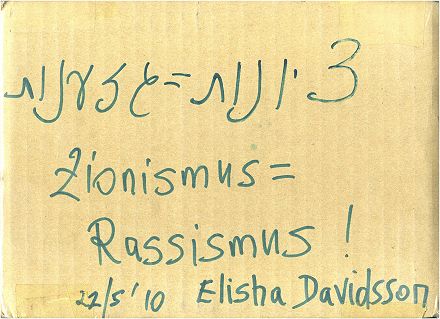 ציונות=גזענות
Zionismus=
Rassismus!
22/5'10 Elisha Davidsson